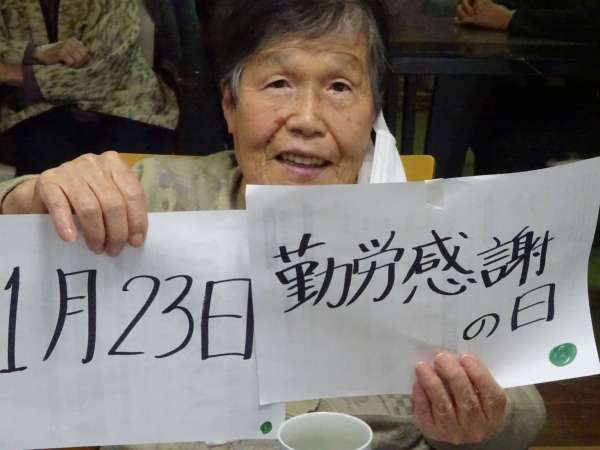 1月23日
勤労感謝
の日